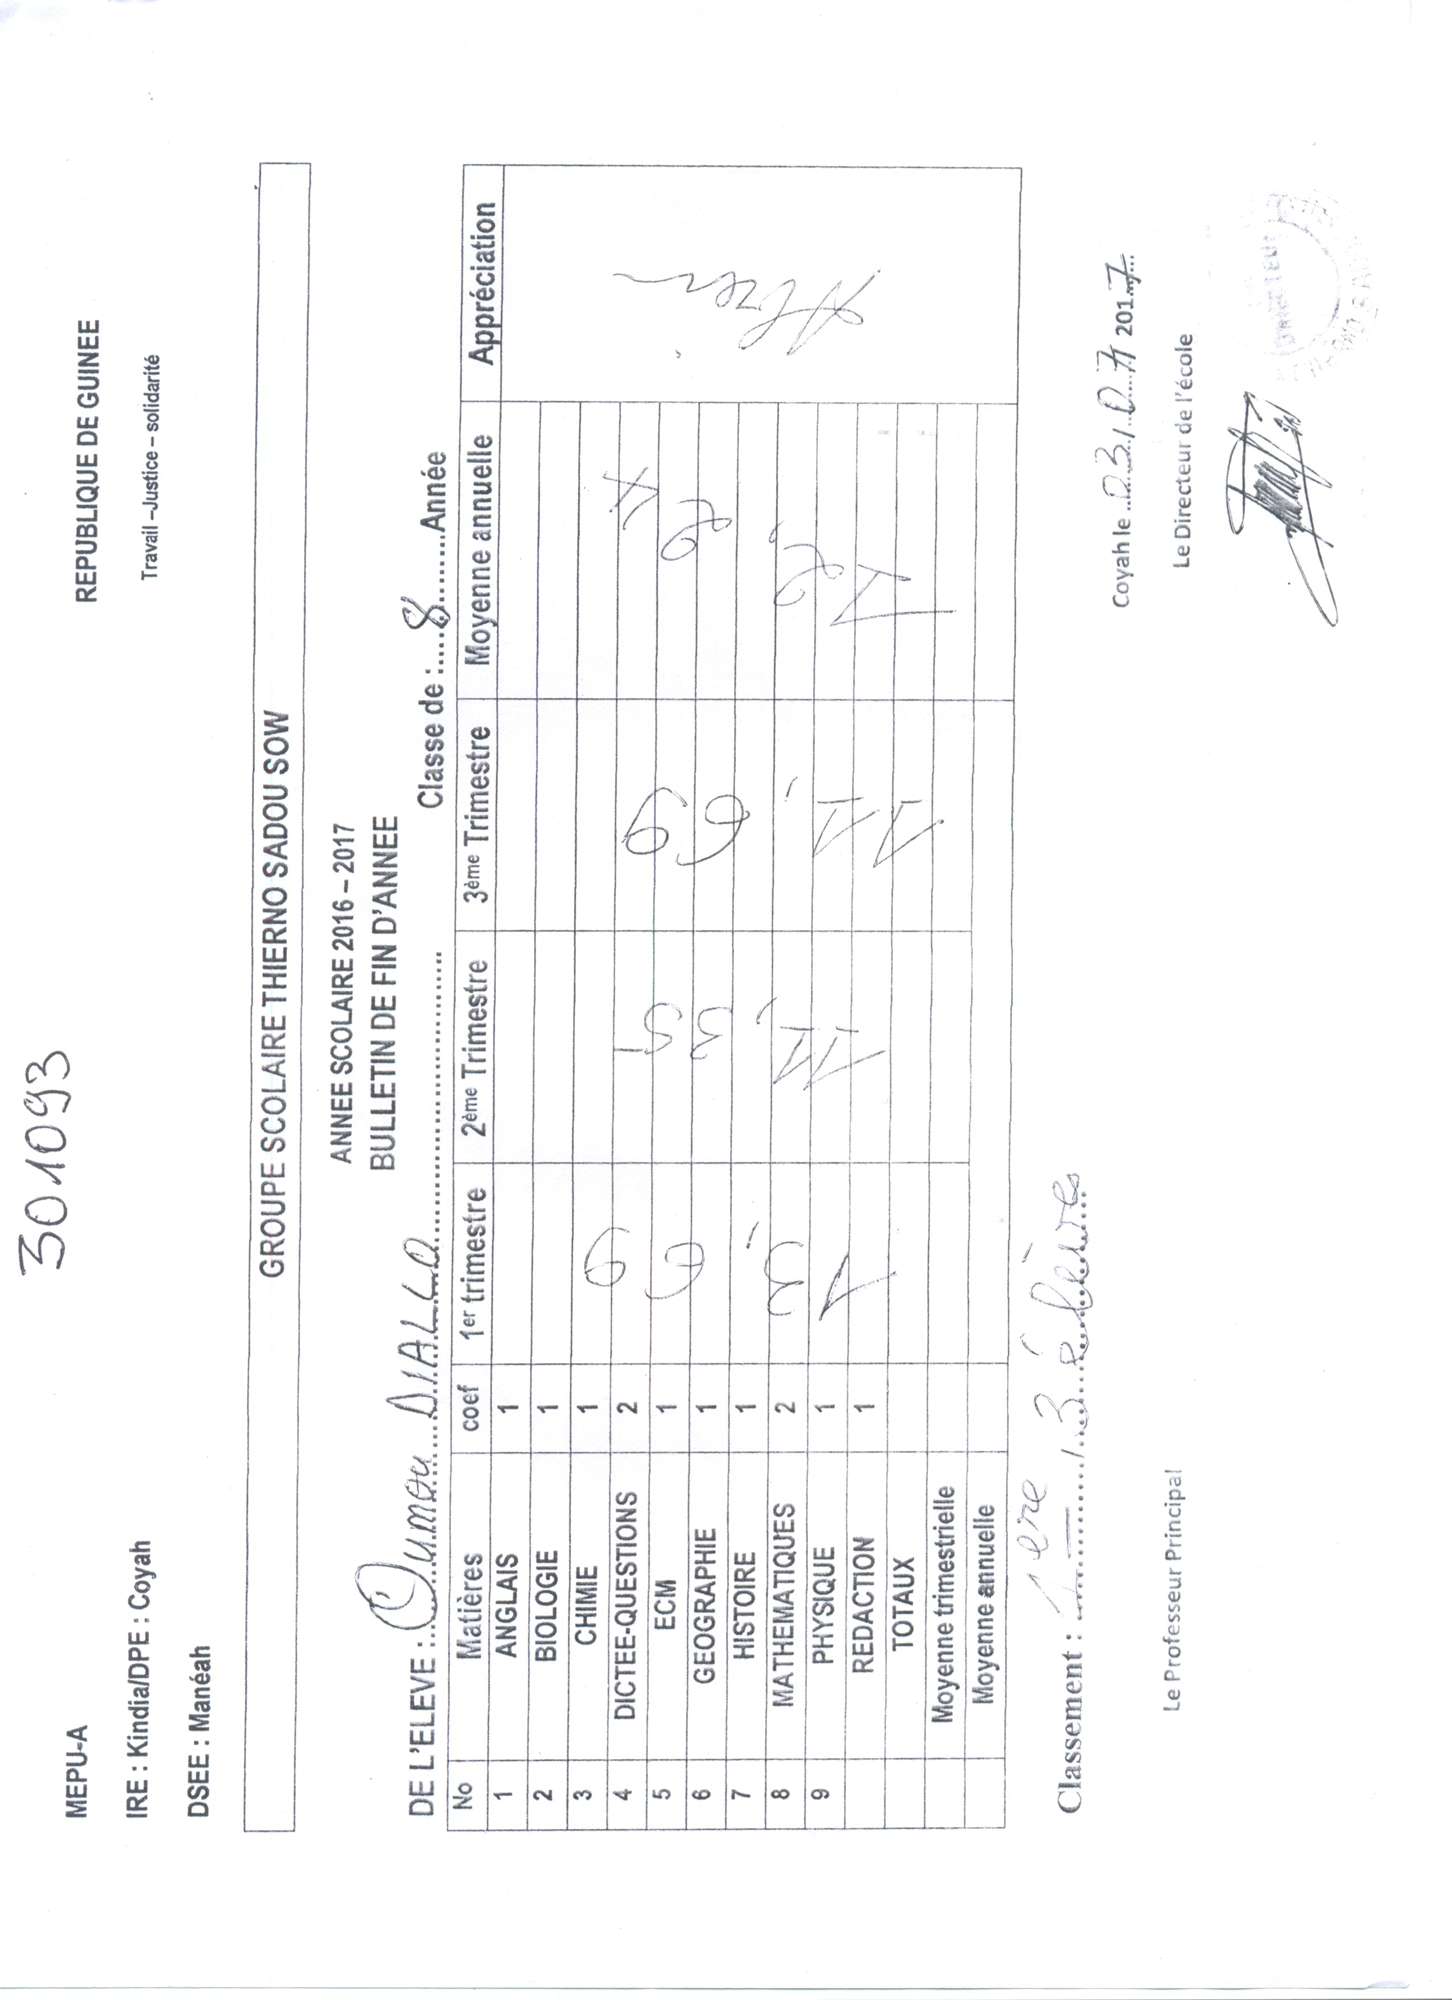 301093
MEPU-A REPUBLIQUE DE GUINEE
IRE : Kindia/DPE : Coyah Travail –Justice – solidarité
DSEE : Manéah
GROUPE SCOLAIRE THIERNO SADOU SOW
ANNEE SCOLAIRE 2016 – 2017
BULLETIN DE FIN D'ANNEE
DE L'ELEVE : Oumou DIALLO Classe de : 8 Année
No Matières coef 1er trimestre 2ème Trimestre 3ème Trimestre Moyenne annuelle Appréciation
1 ANGLAIS 1
2 BIOLOGIE 1
3 CHIMIE 1
4 DICTEE-QUESTIONS 2
5 ECM 1
6 GEOGRAPHIE 1
7 HISTOIRE 1
8 MATHEMATIQUES 2
9 PHYSIQUE 1
REDACTION 1
TOTAUX
Moyenne trimestrielle
Moyenne annuelle
13,69 11,35 11,69 12,24 A.Bien
Classement : 1ere / 3 élèves
Coyah le 03/07/2017
Le Professeur Principal Le Directeur de l'école